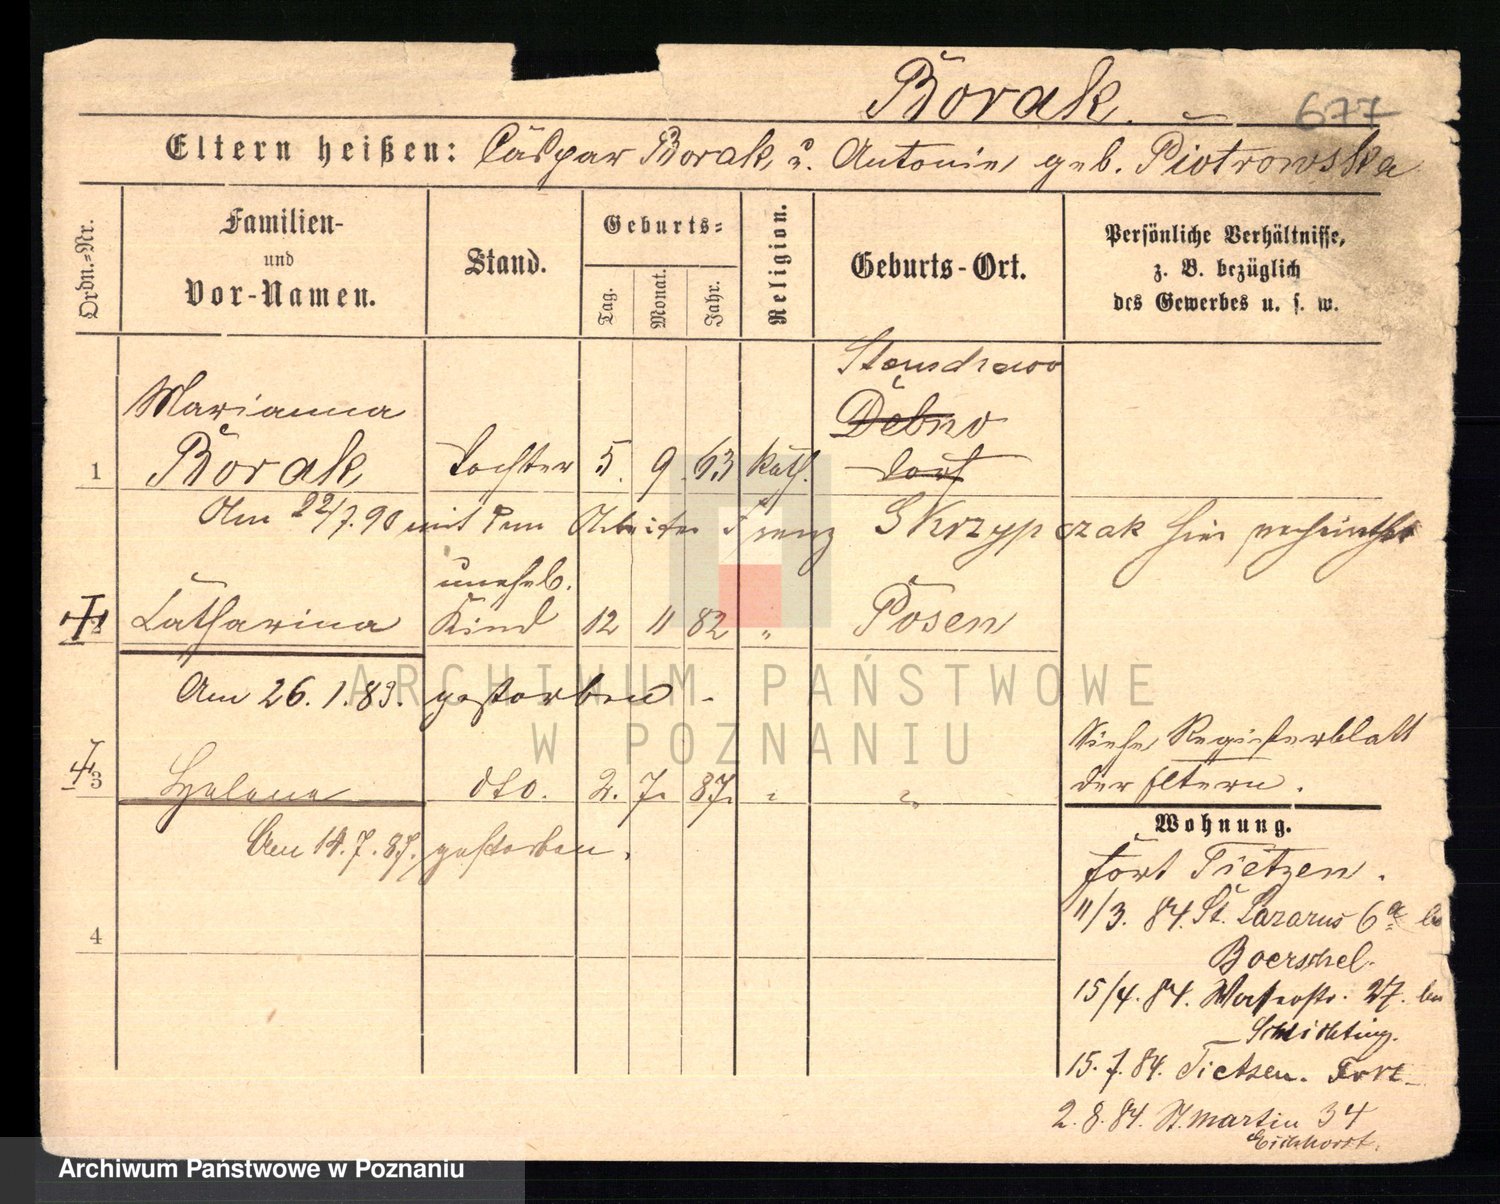 Borak.
677
Eltern heißen: Caspar Borak u. Antonie geb. Piotrowska
Ordn.-Nr.
Familien-
und
Vor-Namen.
Stand.
Geburts-
Tag.
Monat.
Jahr.
Religion.
Geburts-Ort.
Persönliche Verhältnisse,
z. B. bezüglich
des Gewerbes u. s. w.
Marianna
Dębno
1 Borak Tochter 5. 9. 63 kath. Dorf
Am 22/7. 90 mit dem Arbeiter Franz Skrzypczak hier verheirathet
unehel.
2 Catharina Kind 12 11 82 " Posen
Am 26. 1. 83. gestorben -
Siehe Registerblatt
der Eltern.
3 Helene dto. 2. 7. 87. " "
Am 14. 7. 87. gestorben.
4
Wohnung.
Fort Tietzen.
11/3. 84. St. Lazarus 6a bei
Boerschel.
15/4. 84. Wasserstr. 27. bei
Schlichting.
15. 7. 84. Tietzen. Fort
2. 8. 84. St. Martin 34
Eichhorst.
ARCHIWUM PAŃSTWOWE
W POZNANIU
Archiwum Państwowe w Poznaniu